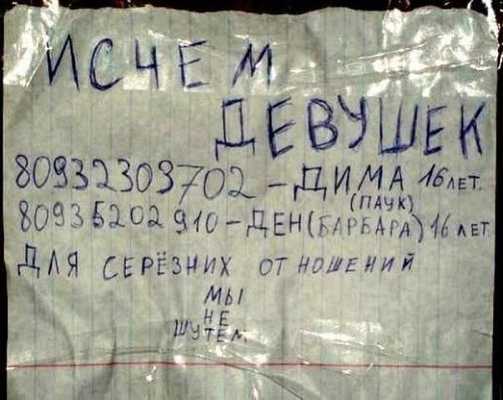 ИСЧЕМ
ДЕВУШЕК
80932309702-ДИМА 16 ЛЕТ.
(ПАУК)
80935202910-ДЕН(БАРБАРА)16 ЛЕТ
ДЛЯ СЕРЁЗНИХ ОТ НОШЕНИЙ
МЫ
НЕ
ШУТЕМ.